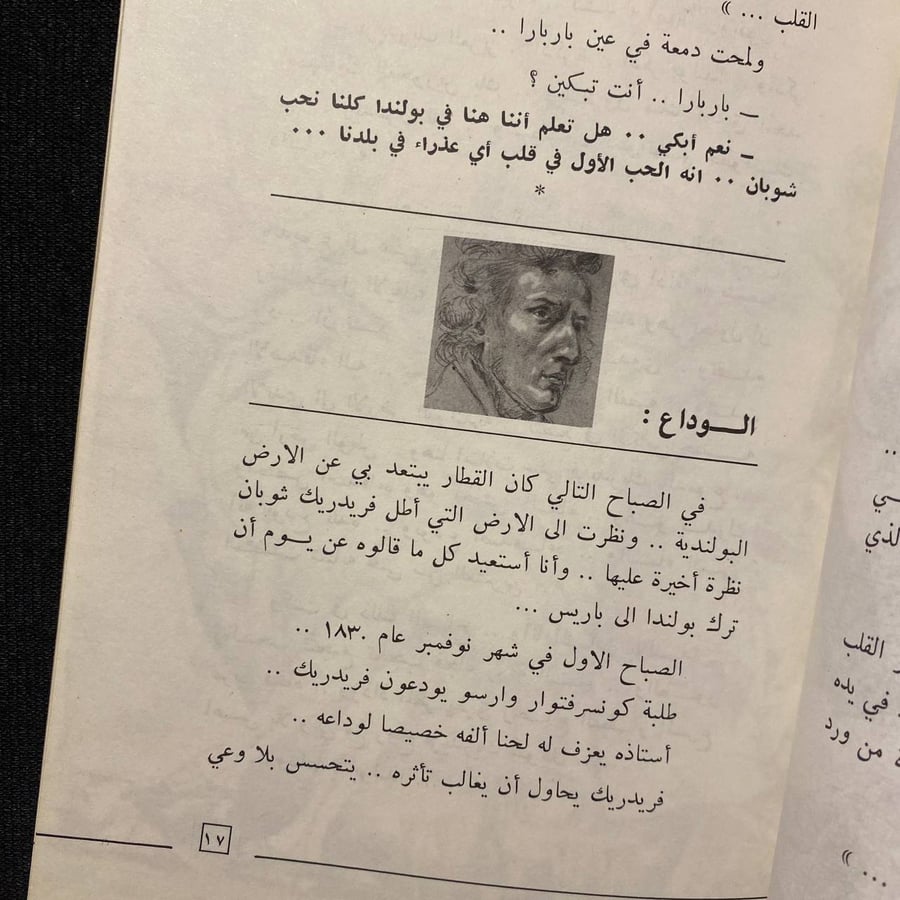 القلب ... »
ولمحت دمعة في عين باربارا ..
ـ باربارا .. أنت تبكين ؟
ـ نعم أبكي .. هل تعلم أننا هنا في بولندا كلنا نحب
شوبان .. انه الحب الأول في قلب أي عذراء في بلدنا ...
*
الـــوداع :
في الصباح التالي كان القطار يبتعد بي عن الارض
البولندية .. ونظرت الى الارض التي أطل فريدريك شوبان
نظرة أخيرة عليها .. وأنا أستعيد كل ما قالوه عن يــوم أن
ترك بولندا الى باريس ...
الصباح الاول في شهر نوفمبر عام ١٨٣٠ ..
طلبة كونسرفتوار وارسو يودعون فريدريك ..
أستاذه يعزف له لحنا ألفه خصيصا لوداعه ..
فريدريك يحاول أن يغالب تأثره .. يتحسس بلا وعي
١٧
..
ـي
لذي
القلب
في يده
من ورد
... »